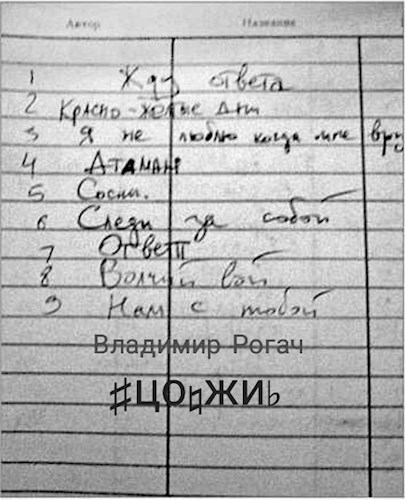 Автор Название
1 Жду ответа
2 Красно-желтые дни
3 Я не люблю когда мне вру
4 Атаман
5 Сосны.
6 Следи за собой
7 Ответ
8 Волчий вой
9 Нам с тобой
Владимир Рогач
♯ЦО♮ЖИ♭